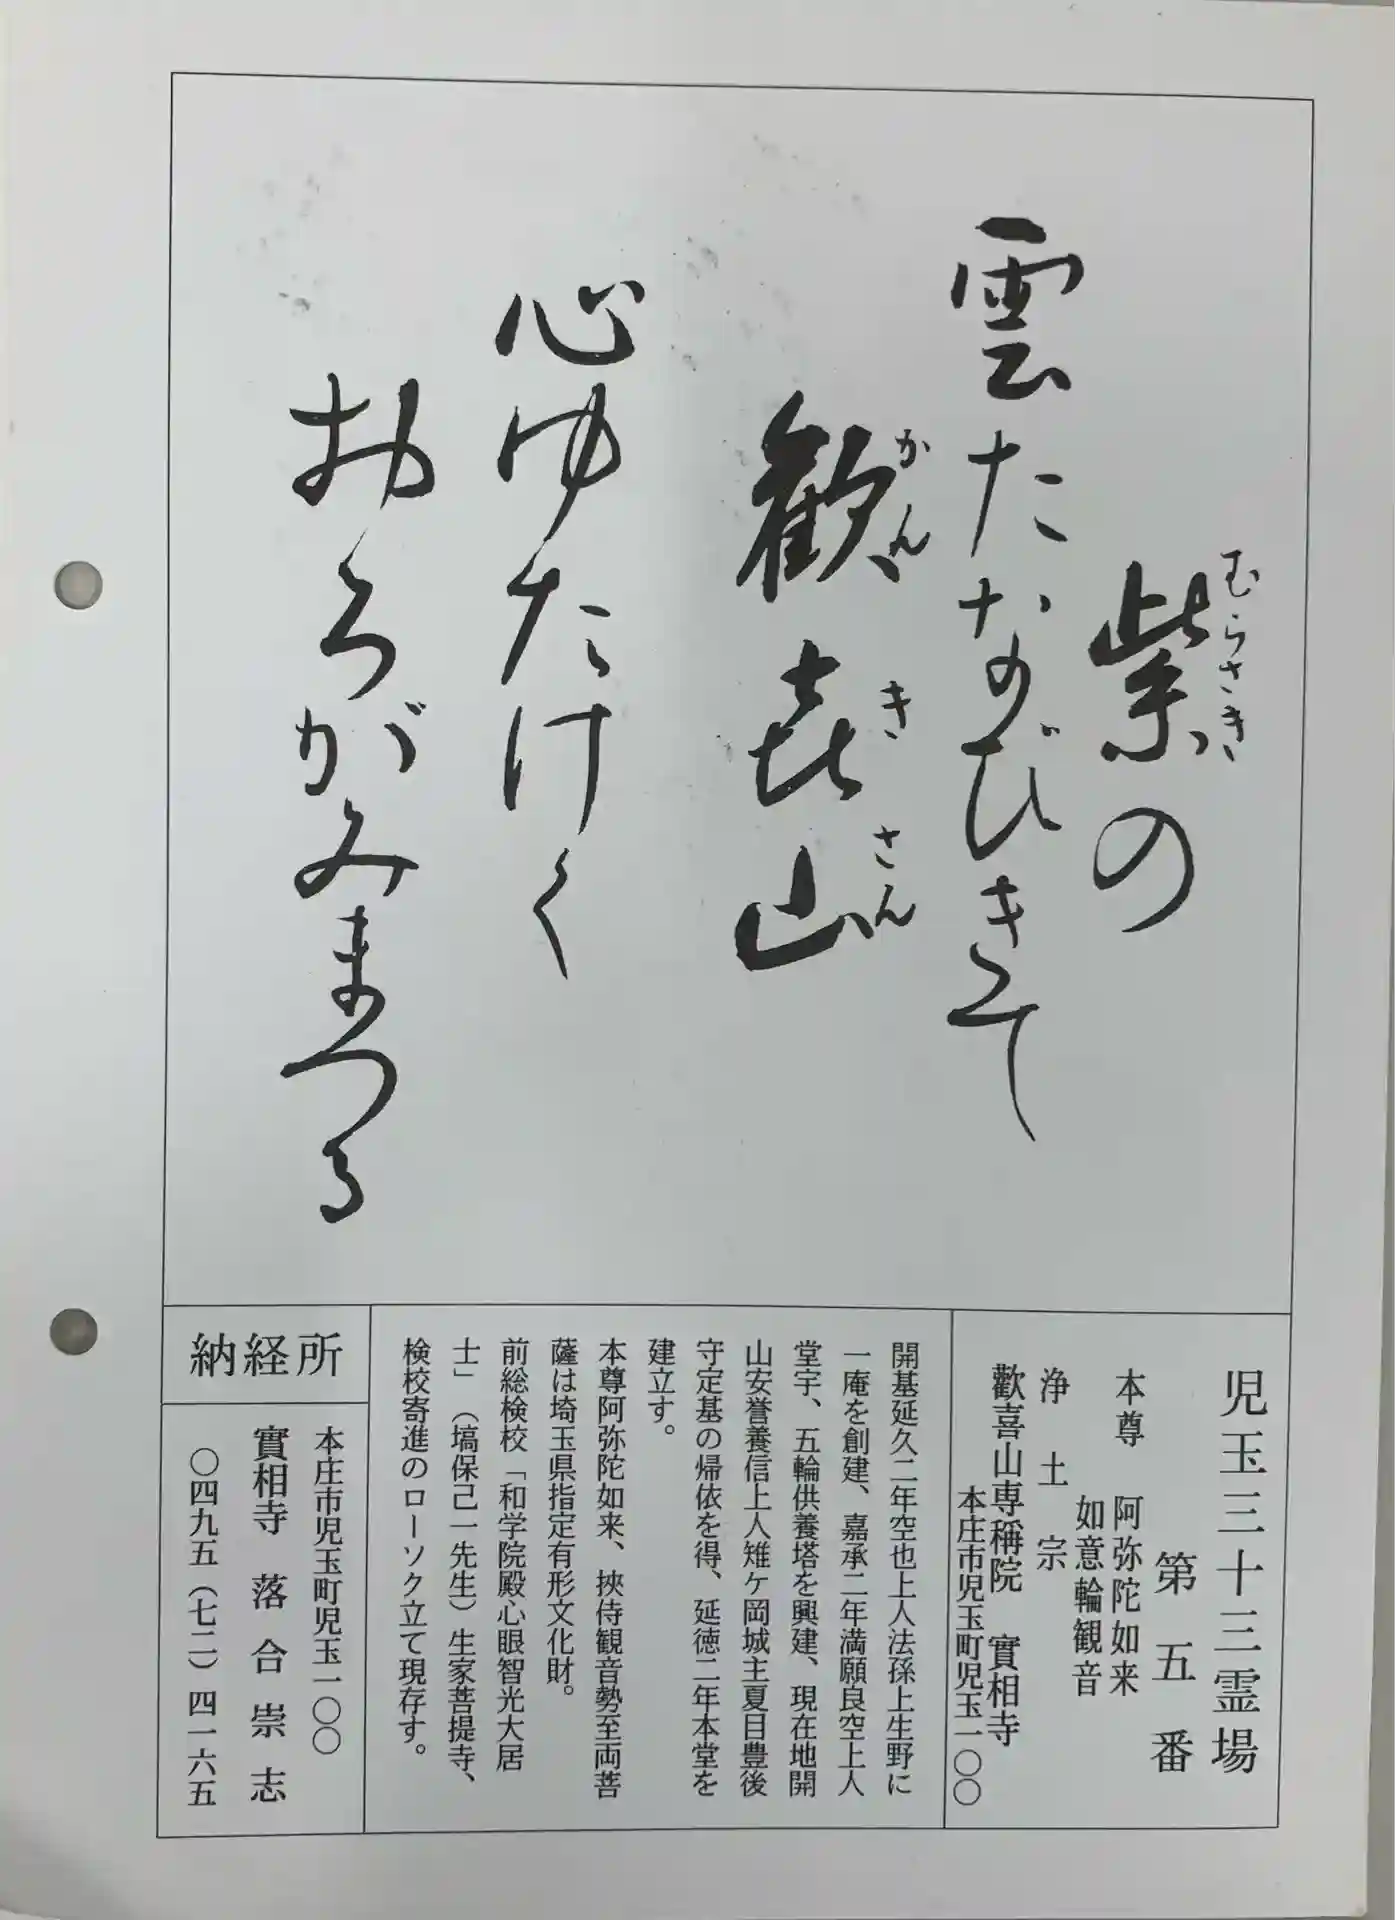 紫の
むらさき
雲たなびきて
歡㐂山
かんきさん
心ゆたけく
おろがみまつる
児玉三十三霊場
第五番
本尊 阿弥陀如来
如意輪観音
浄土宗
歡喜山専稱院 實相寺
本庄市児玉町児玉一〇〇
開基延久二年空也上人法孫上生野に
一庵を創建、嘉承二年満願良空上人
堂宇、五輪供養塔を興建、現在地開
山安誉養信上人雉ケ岡城主夏目豊後
守定基の帰依を得、延徳二年本堂を
建立す。
本尊阿弥陀如来、挾侍観音勢至両菩
薩は埼玉県指定有形文化財。
前総検校「和学院殿心眼智光大居
士」（塙保己一先生）生家菩提寺、
検校寄進のローソク立て現存す。
納経所
本庄市児玉町児玉一〇〇
實相寺 落合崇志
〇四九五（七二）四一六五